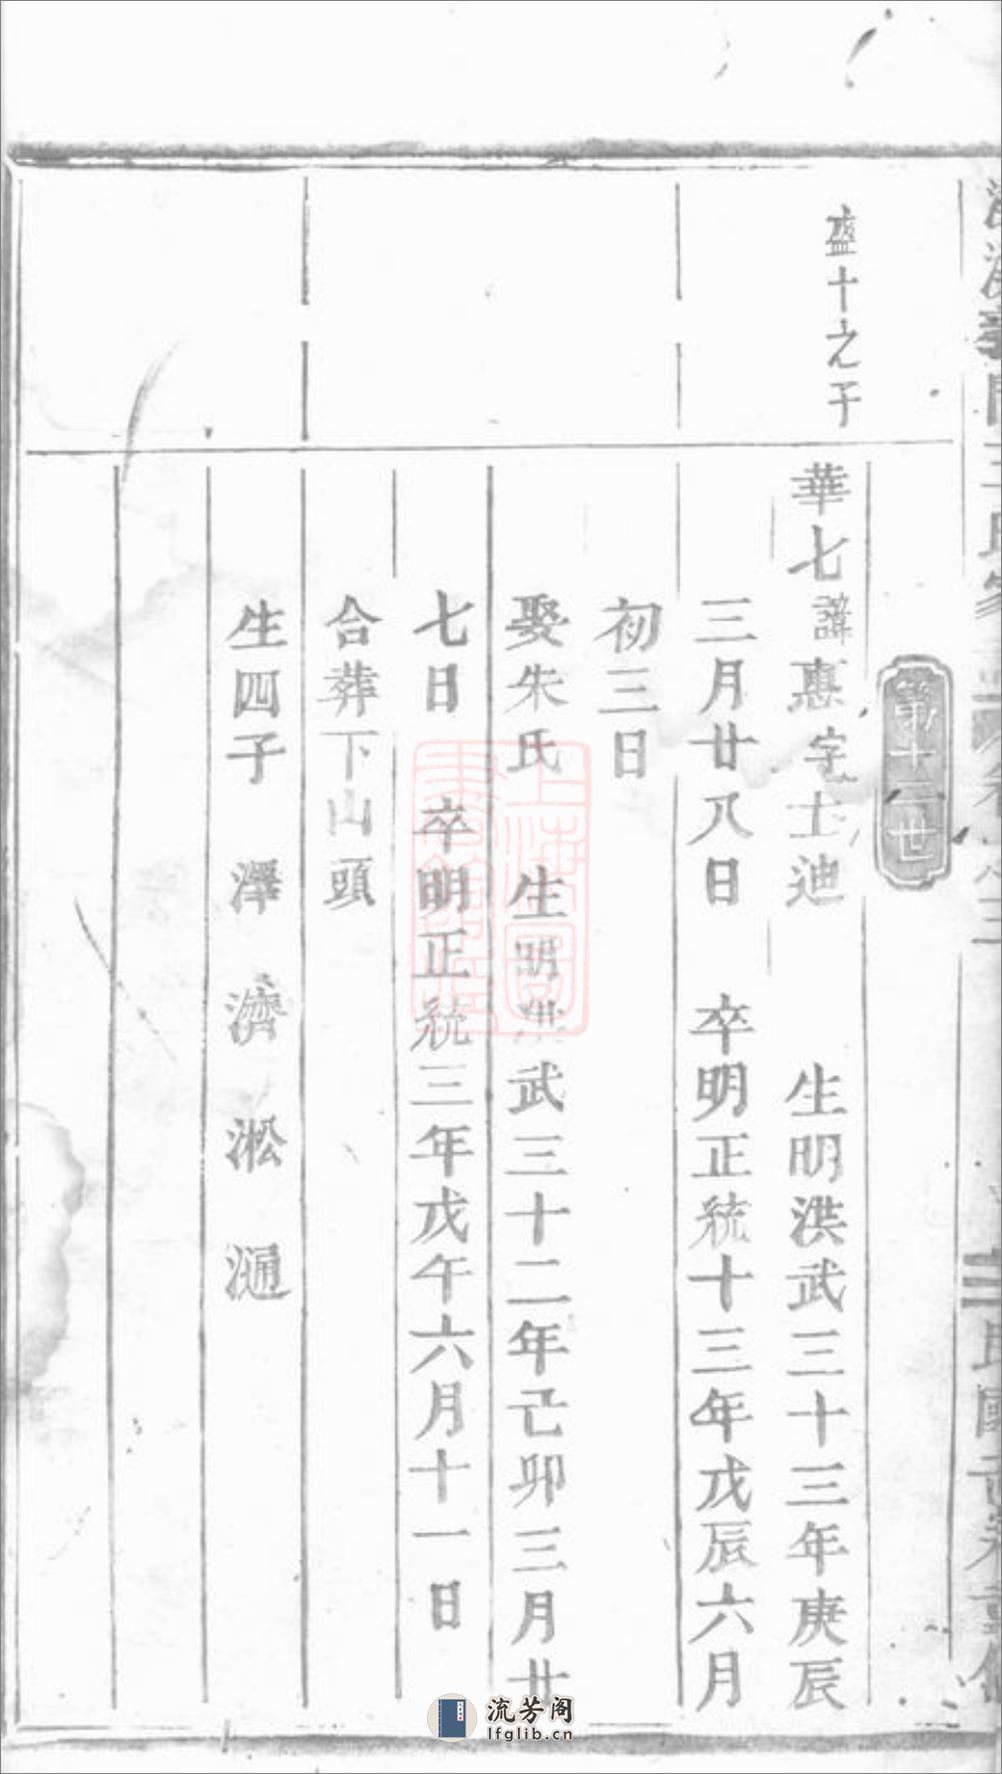 盛十之子
第十二世
華七諱惠字士迪 生明洪武三十三年庚辰
三月廿八日 卒明正統十三年戊辰六月
初三日
娶朱氏 生明洪武三十二年己卯三月廿
七日 卒明正統三年戊午六月十一日
合葬下山頭
生四子 澤 濟 淞 通
上海圖書館藏
流芳阁
lfglib.cn